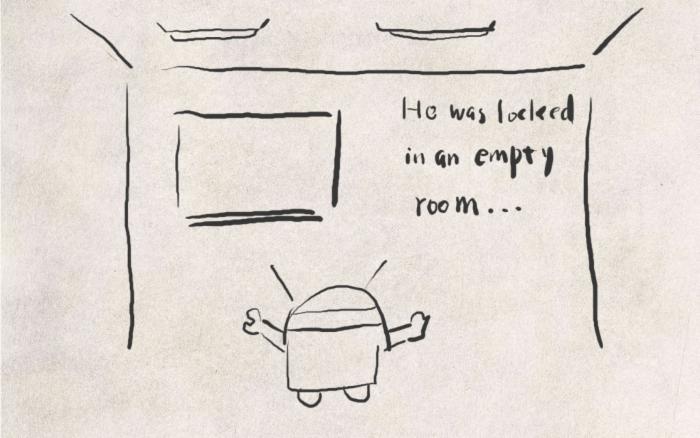 He was locked
in an empty
room...